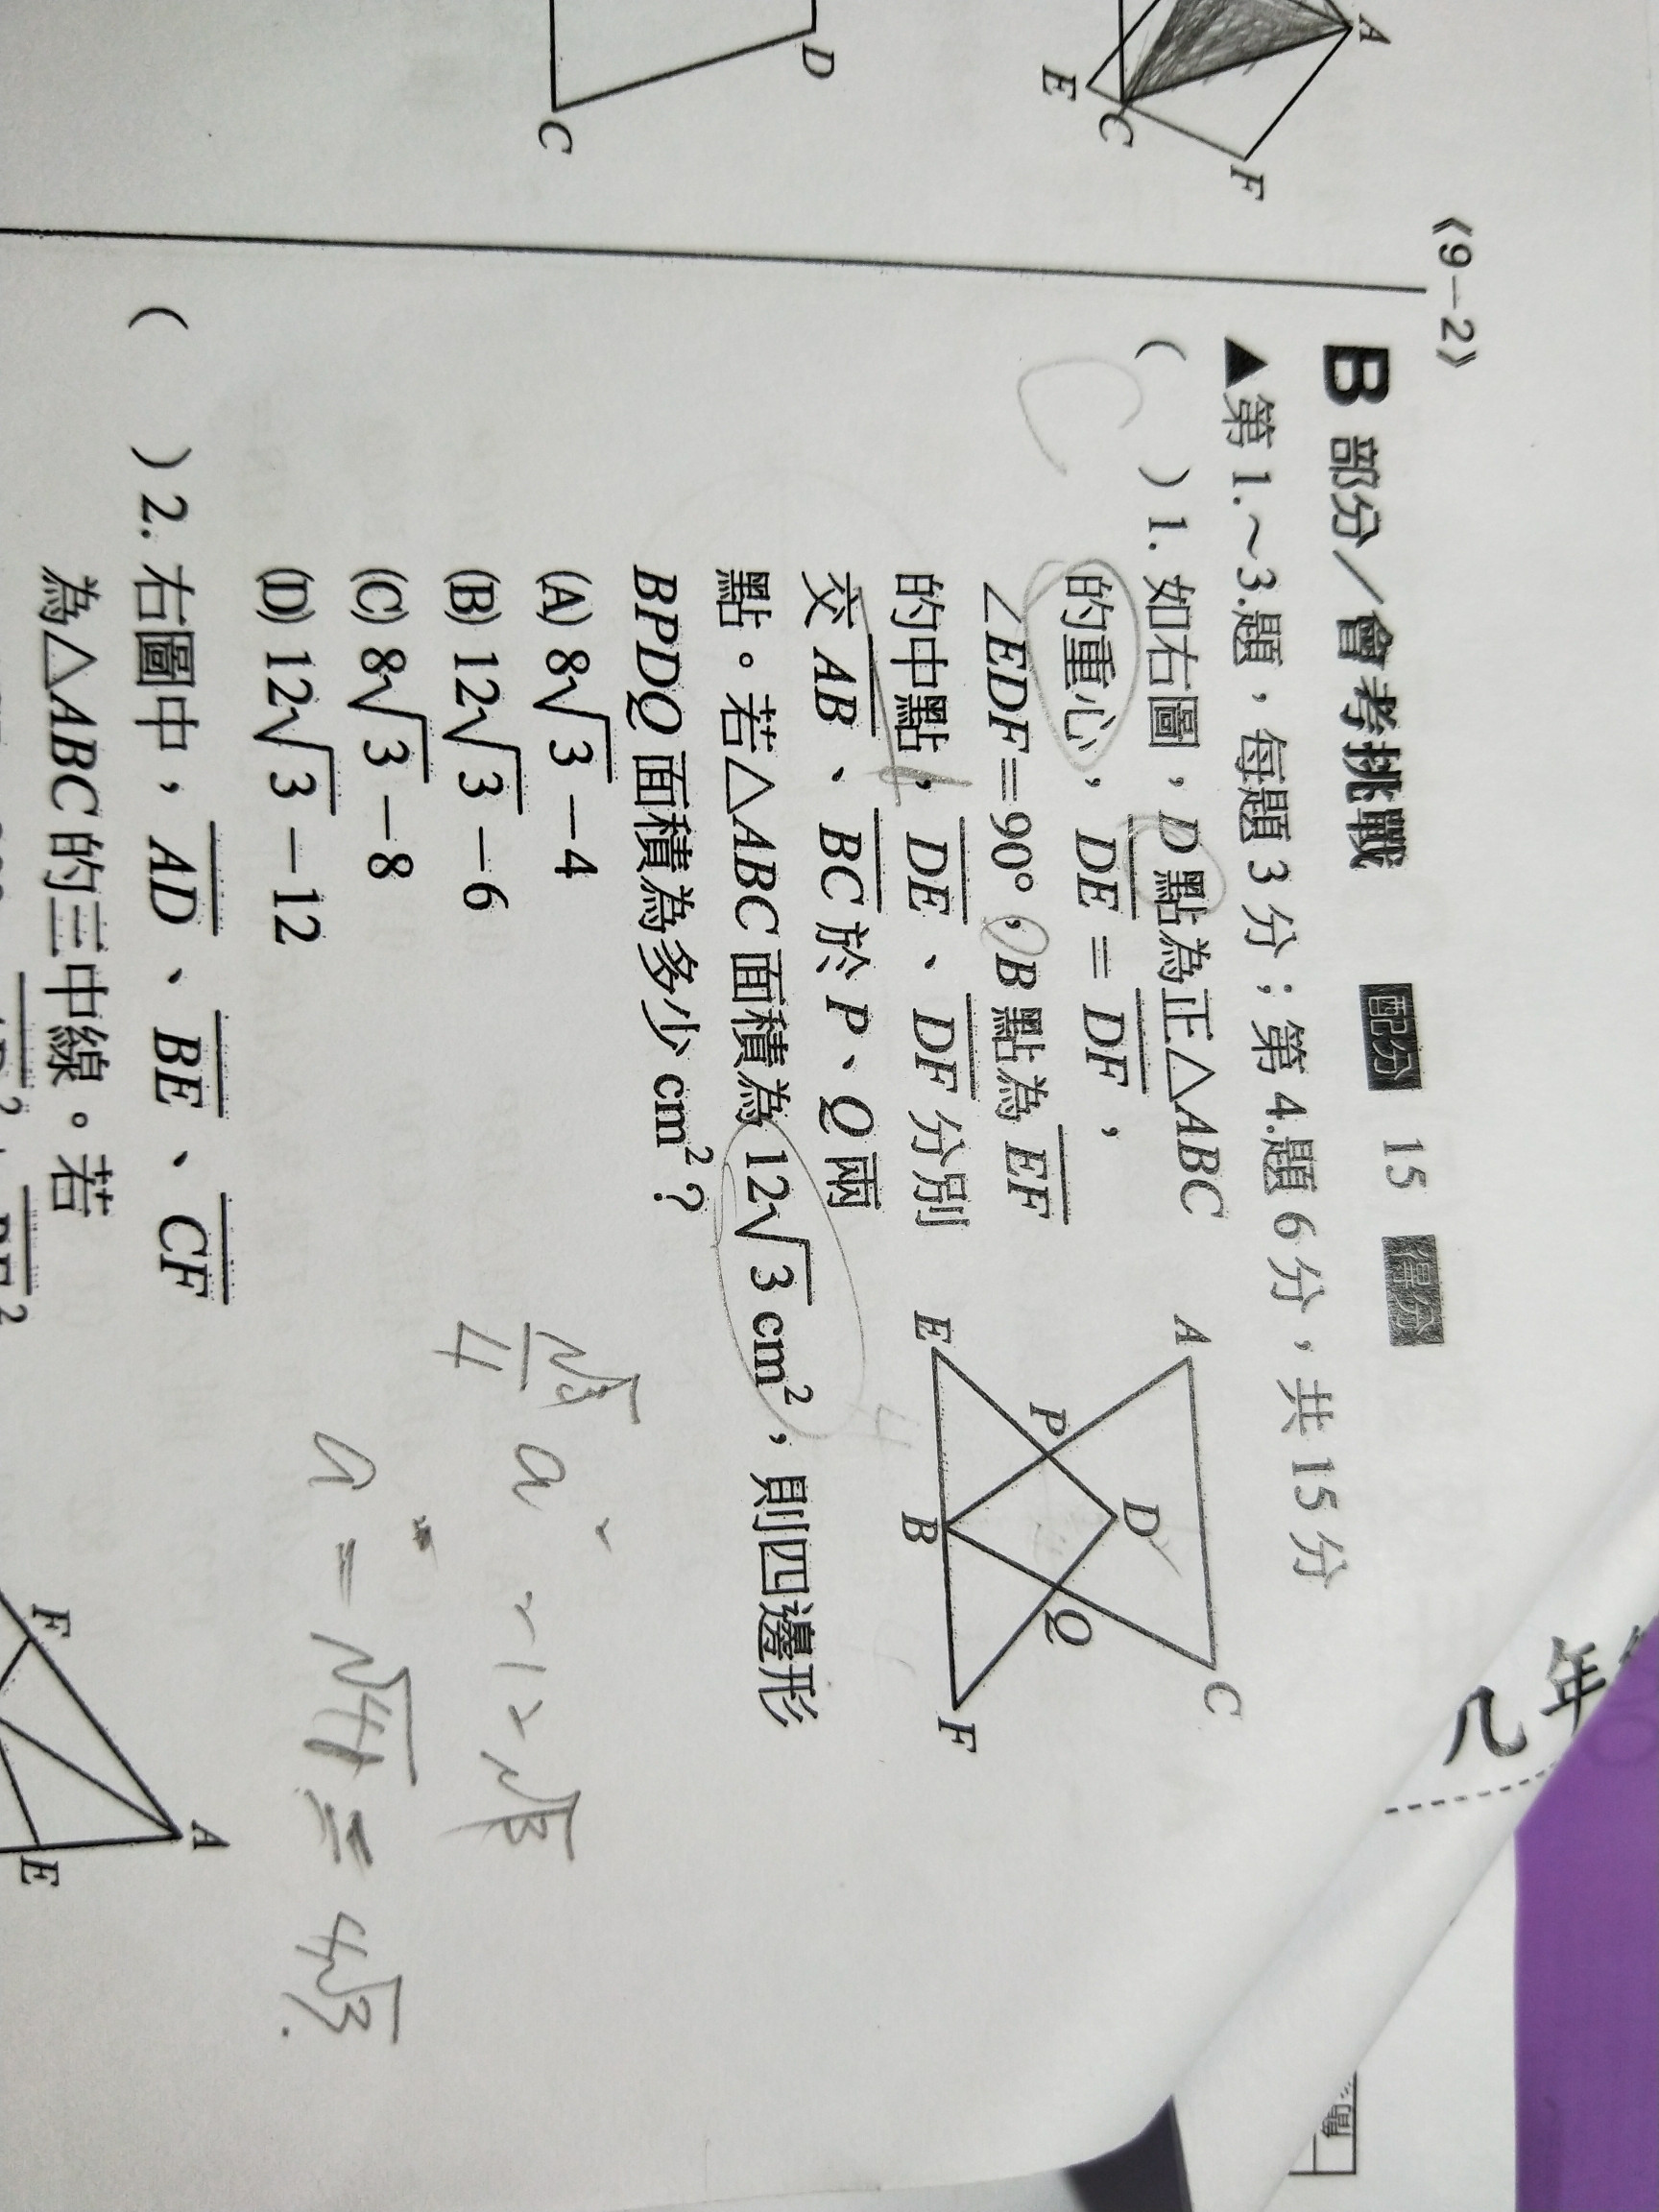 《9－2》
B 部分／會考挑戰 配分 15 得分
▲第 1.～3.題，每題 3 分；第 4.題 6 分，共 15 分
( C ) 1. 如右圖，D 點為正△ABC
的重心，DE＝DF，
∠EDF＝90°，B 點為 EF
的中點，DE、DF 分別
交 AB、BC 於 P、Q 兩
點。若△ABC 面積為 12√3 cm²，則四邊形
BPDQ 面積為多少 cm²？
(A) 8√3－4
(B) 12√3－6
(C) 8√3－8
(D) 12√3－12
A
C
D
P
Q
E
B
F
( ) 2. 右圖中，AD、BE、CF
為△ABC 的三中線。若
F
A
E
A
E
C
F
D
C
年
√3/4 a² = 12√3
a = √48 = 4√3